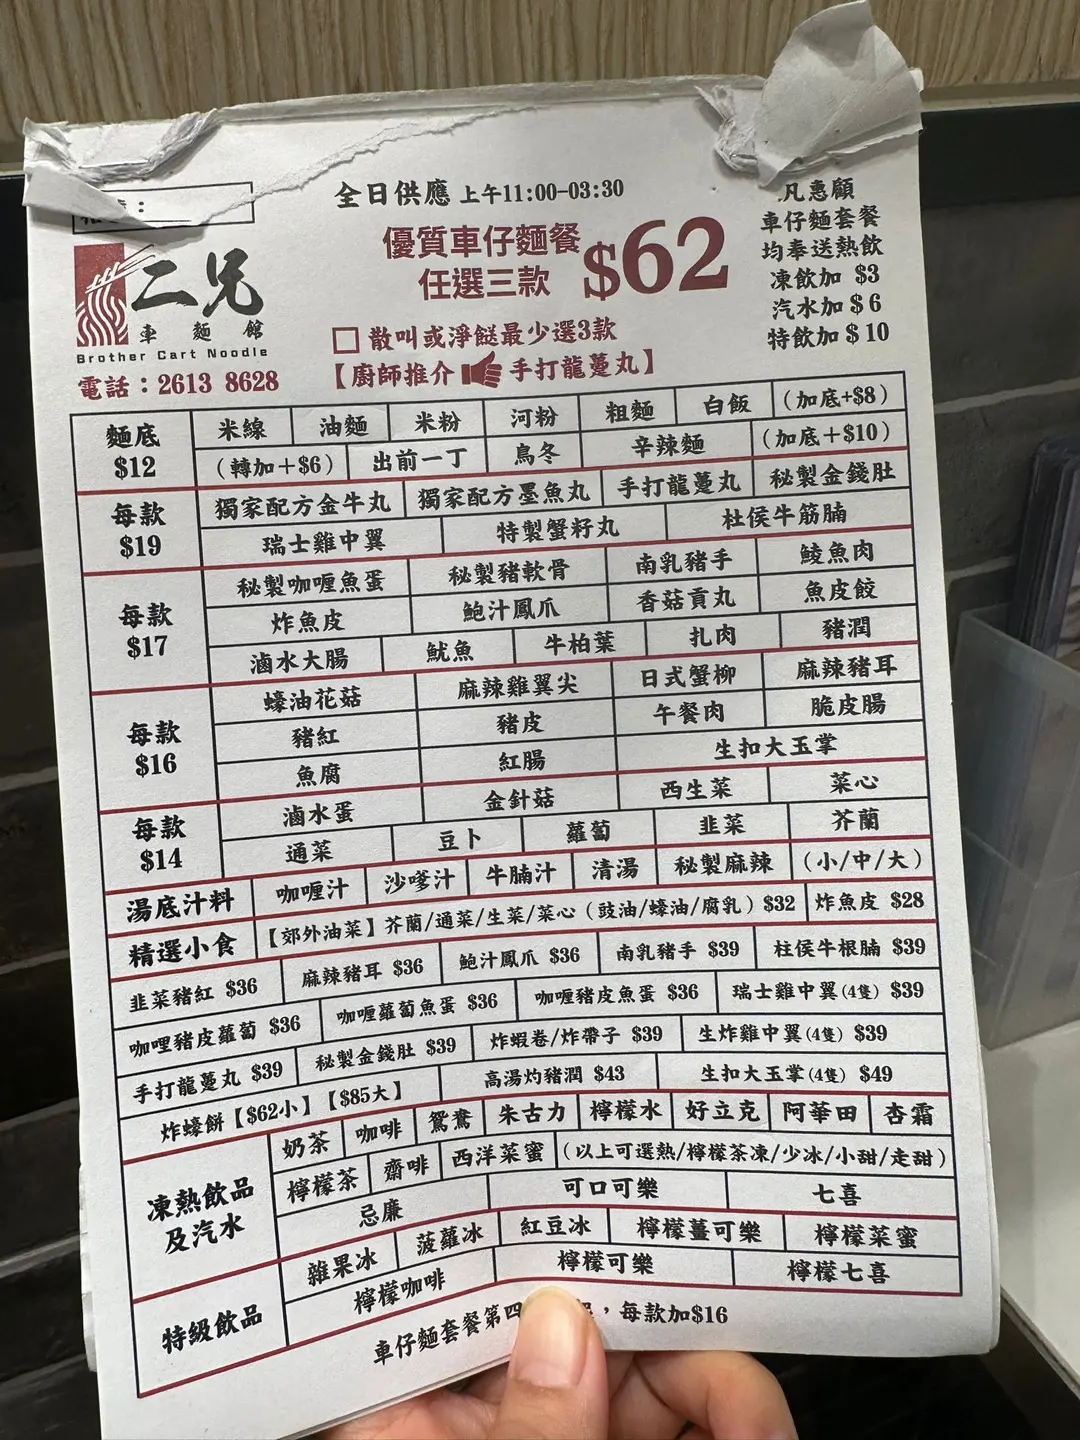 全日供應 上午11:00-03:30
優質車仔麵餐
任選三款 $62
凡惠顧
車仔麵套餐
均奉送熱飲
凍飲加 $3
汽水加 $ 6
特飲加 $ 10
二兄
車麵館
Brother Cart Noodle
電話：2613 8628
散叫或淨餸最少選3款
【廚師推介 手打龍躉丸】
麵底 $12
米線 油麵 米粉 河粉 粗麵 白飯 (加底+$8)
(轉加＋$6) 出前一丁 烏冬 辛辣麵 (加底＋$10)
每款 $19
獨家配方金牛丸 獨家配方墨魚丸 手打龍躉丸 秘製金錢肚
瑞士雞中翼 特製蟹籽丸 杜侯牛筋腩
每款 $17
秘製咖喱魚蛋 秘製豬軟骨 南乳豬手 鯪魚肉
炸魚皮 鮑汁鳳爪 香菇貢丸 魚皮餃
滷水大腸 魷魚 牛柏葉 扎肉 豬潤
每款 $16
蠔油花菇 麻辣雞翼尖 日式蟹柳 麻辣豬耳
豬紅 豬皮 午餐肉 脆皮腸
魚腐 紅腸 生扣大玉掌
每款 $14
滷水蛋 金針菇 西生菜 菜心
通菜 豆卜 蘿蔔 韭菜 芥蘭
湯底汁料 咖喱汁 沙嗲汁 牛腩汁 清湯 秘製麻辣 (小/中/大)
精選小食 【郊外油菜】芥蘭/通菜/生菜/菜心（豉油/蠔油/腐乳）$32 炸魚皮 $28
韭菜豬紅 $36 麻辣豬耳 $36 鮑汁鳳爪 $36 南乳豬手 $39 柱侯牛根腩 $39
咖哩豬皮蘿蔔 $36 咖喱蘿蔔魚蛋 $36 咖喱豬皮魚蛋 $36 瑞士雞中翼(4隻) $39
手打龍躉丸 $39 秘製金錢肚 $39 炸蝦卷/炸帶子 $39 生炸雞中翼(4隻) $39
炸蠔餅【$62小】【$85大】 高湯灼豬潤 $43 生扣大玉掌(4隻) $49
凍熱飲品
及汽水
奶茶 咖啡 鴛鴦 朱古力 檸檬水 好立克 阿華田 杏霜
檸檬茶 齋啡 西洋菜蜜 (以上可選熱/檸檬茶凍/少冰/小甜/走甜)
忌廉 可口可樂 七喜
特級飲品
雜果冰 菠蘿冰 紅豆冰 檸檬薑可樂 檸檬菜蜜
檸檬咖啡 檸檬可樂 檸檬七喜
車仔麵套餐第四 ，每款加$16